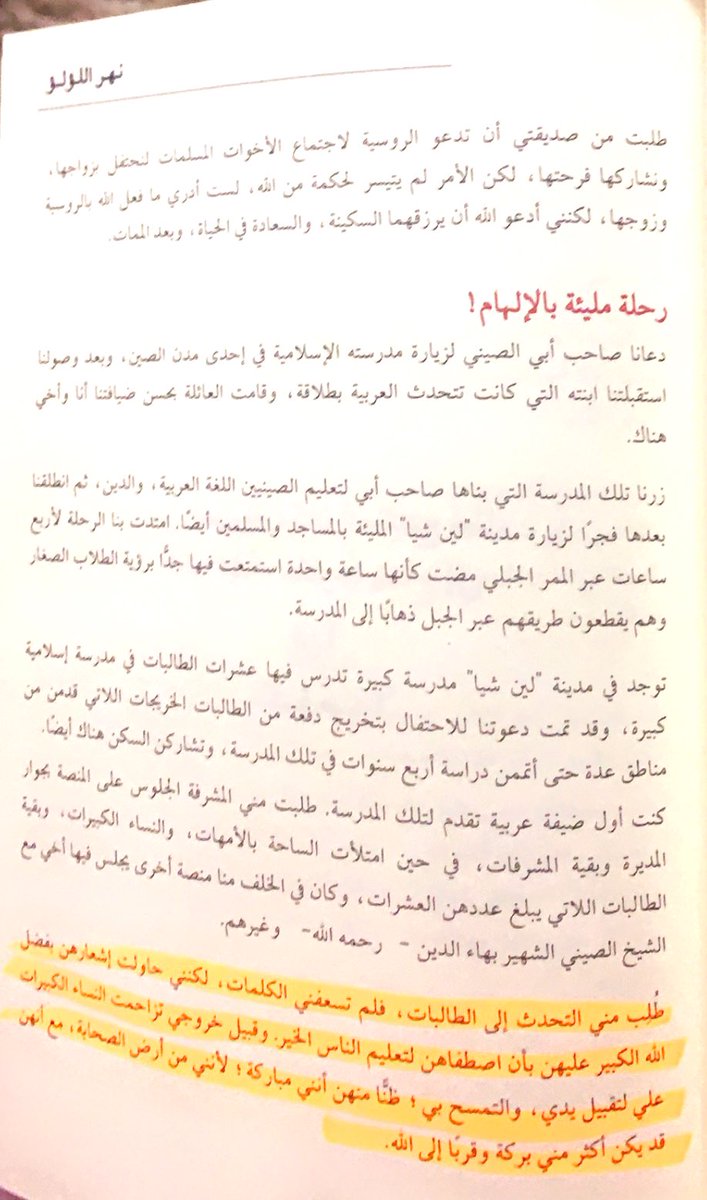 نهر اللؤلؤ
طلبت من صديقتي أن تدعو الروسية لاجتماع الأخوات المسلمات لنحتفل بزواجها،
ونشاركها فرحتها، لكن الأمر لم يتيسر لحكمة من الله، لست أدري ما فعل الله بالروسية
وزوجها، لكنني أدعو الله أن يرزقهما السكينة، والسعادة في الحياة، وبعد الممات.
رحلة مليئة بالإلهام!
دعانا صاحب أبي الصيني لزيارة مدرسته الإسلامية في إحدى مدن الصين، وبعد وصولنا
استقبلتنا ابنته التي كانت تتحدث العربية بطلاقة، وقامت العائلة بحسن ضيافتنا أنا وأخي
هناك.
زرنا تلك المدرسة التي بناها صاحب أبي لتعليم الصينيين اللغة العربية، والدين، ثم انطلقنا
بعدها فجرًا لزيارة مدينة "لين شيا" المليئة بالمساجد والمسلمين أيضًا. امتدت بنا الرحلة لأربع
ساعات عبر الممر الجبلي مضت كأنها ساعة واحدة استمتعت فيها جدًّا برؤية الطلاب الصغار
وهم يقطعون طريقهم عبر الجبل ذهابًا إلى المدرسة.
توجد في مدينة "لين شيا" مدرسة كبيرة تدرس فيها عشرات الطالبات في مدرسة إسلامية
كبيرة، وقد تمت دعوتنا للاحتفال بتخريج دفعة من الطالبات الخريجات اللاتي قدمن من
مناطق عدة حتى أتممن دراسة أربع سنوات في تلك المدرسة، وتشاركن السكن هناك أيضًا.
كنت أول ضيفة عربية تقدم لتلك المدرسة. طلبت مني المشرفة الجلوس على المنصة بجوار
المديرة وبقية المشرفات، في حين امتلأت الساحة بالأمهات، والنساء الكبيرات، وبقية
الطالبات اللاتي يبلغ عددهن العشرات، وكان في الخلف منا منصة أخرى يجلس فيها أخي مع
الشيخ الصيني الشهير بهاء الدين - رحمه الله- وغيرهم.
طُلِب مني التحدث إلى الطالبات، فلم تسعفني الكلمات، لكنني حاولت إشعارهن بفضل
الله الكبير عليهن بأن اصطفاهن لتعليم الناس الخير. وقبيل خروجي تزاحمت النساء الكبيرات
علي لتقبيل يدي، والتمسح بي؛ ظنًّا منهن أنني مباركة؛ لأنني من أرض الصحابة؛ مع أنهن
قد يكن أكثر مني بركة وقربًا إلى الله.